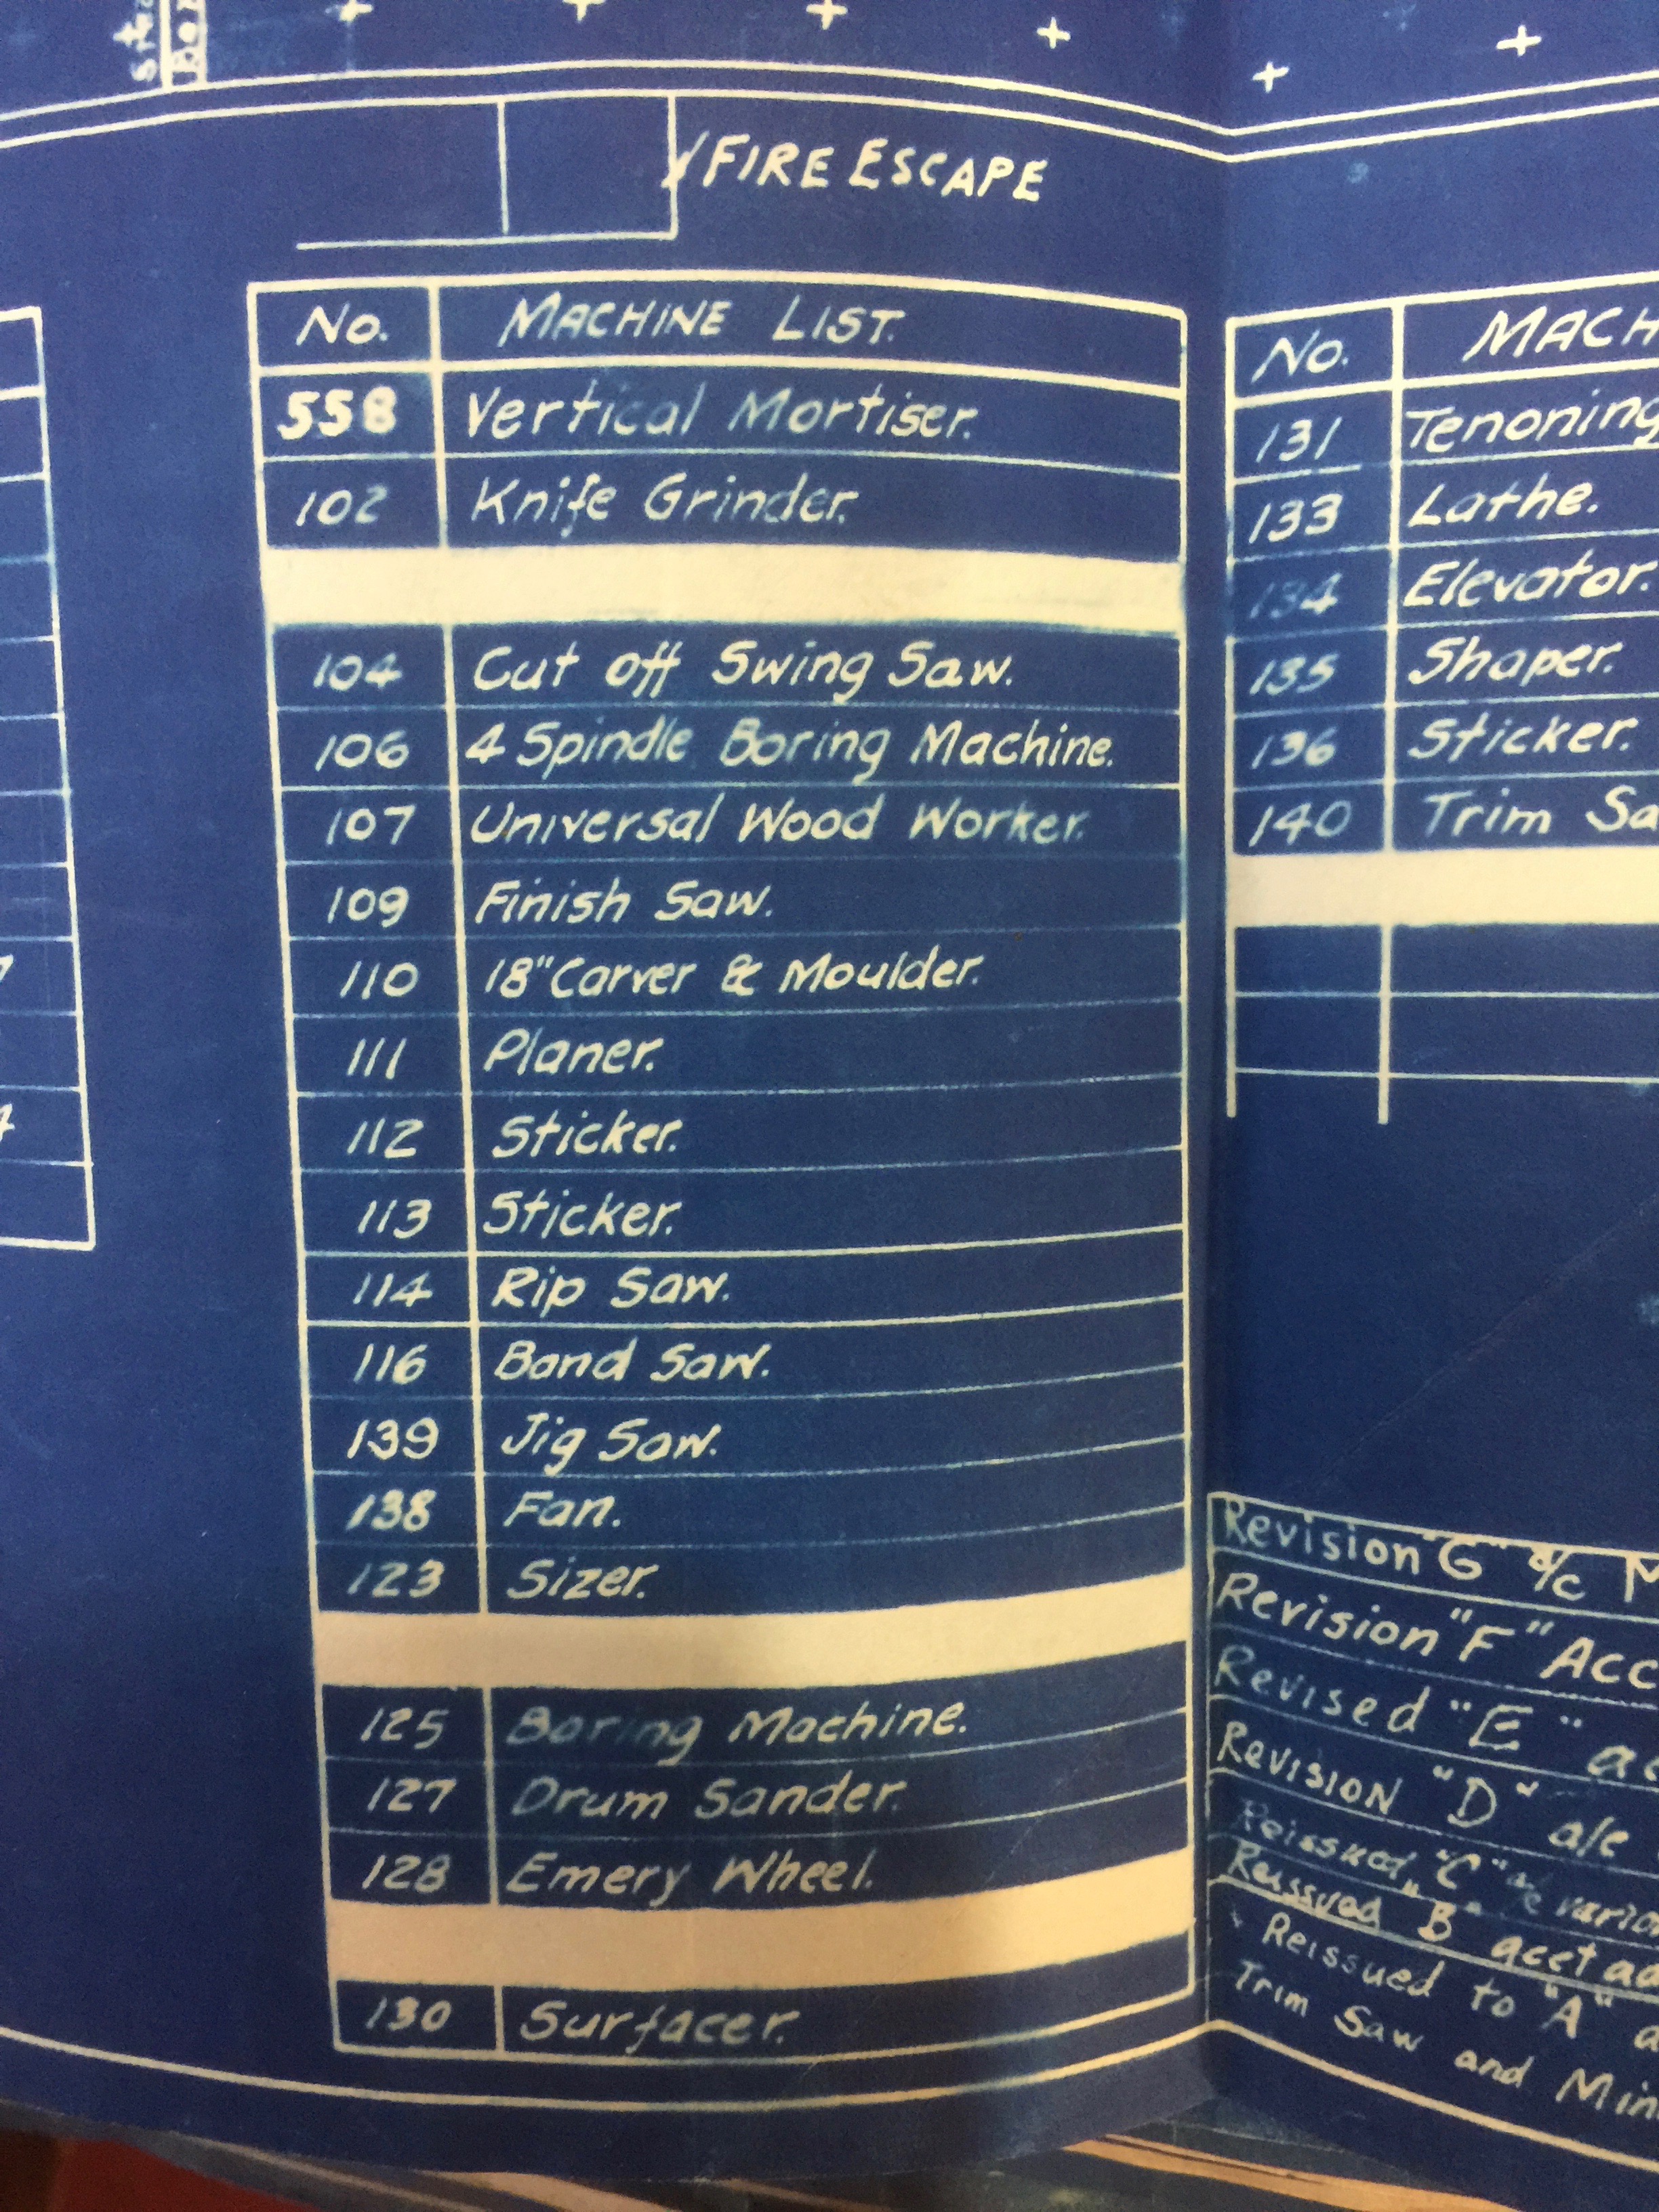 FIRE ESCAPE
No. MACHINE LIST.
558 Vertical Mortiser.
102 Knife Grinder.
104 Cut off Swing Saw.
106 4 Spindle Boring Machine.
107 Universal Wood Worker.
109 Finish Saw.
110 18" Carver & Moulder.
111 Planer.
112 Sticker.
113 Sticker.
114 Rip Saw.
116 Band Saw.
139 Jig Saw.
138 Fan.
123 Sizer.
125 Boring Machine.
127 Drum Sander.
128 Emery Wheel.
130 Surfacer.
No. MACH
131 Tenoning
133 Lathe.
134 Elevator.
135 Shaper.
136 Sticker.
140 Trim Sa
Revision "G" a/c M
Revision "F" Acc
Revised "E" ac
REVISION "D" a/c
Reissued "C" a/c vario
Reissued "B" acct ad
Reissued to "A" a
Trim Saw and Min